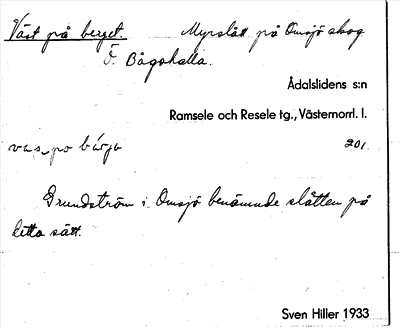 Väst på berget. Myrslått på Omsjö skog
F. Bågahalla.
Ådalslidens s:n
Ramsele och Resele tg., Västernorrl. l.
vas po bárjə 201
Grundström i Omsjö benämnde slåtten på
detta sätt.
Sven Hiller 1933